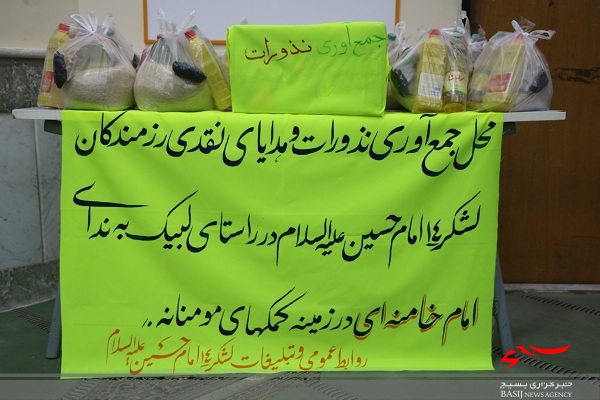 جمع آوری نذورات
محل جمع آوری نذورات و هدایای نقدی رزمندگان
لشکر ۱۴ امام حسین علیه السلام در راستای لبیک به ندای
امام خامنه ای در زمینه کمکهای مومنانه .
روابط عمومی و تبلیغات لشکر ۱۴ امام حسین علیه السلام
خبرگزاری بسیج
BASIJ NEWS AGENCY